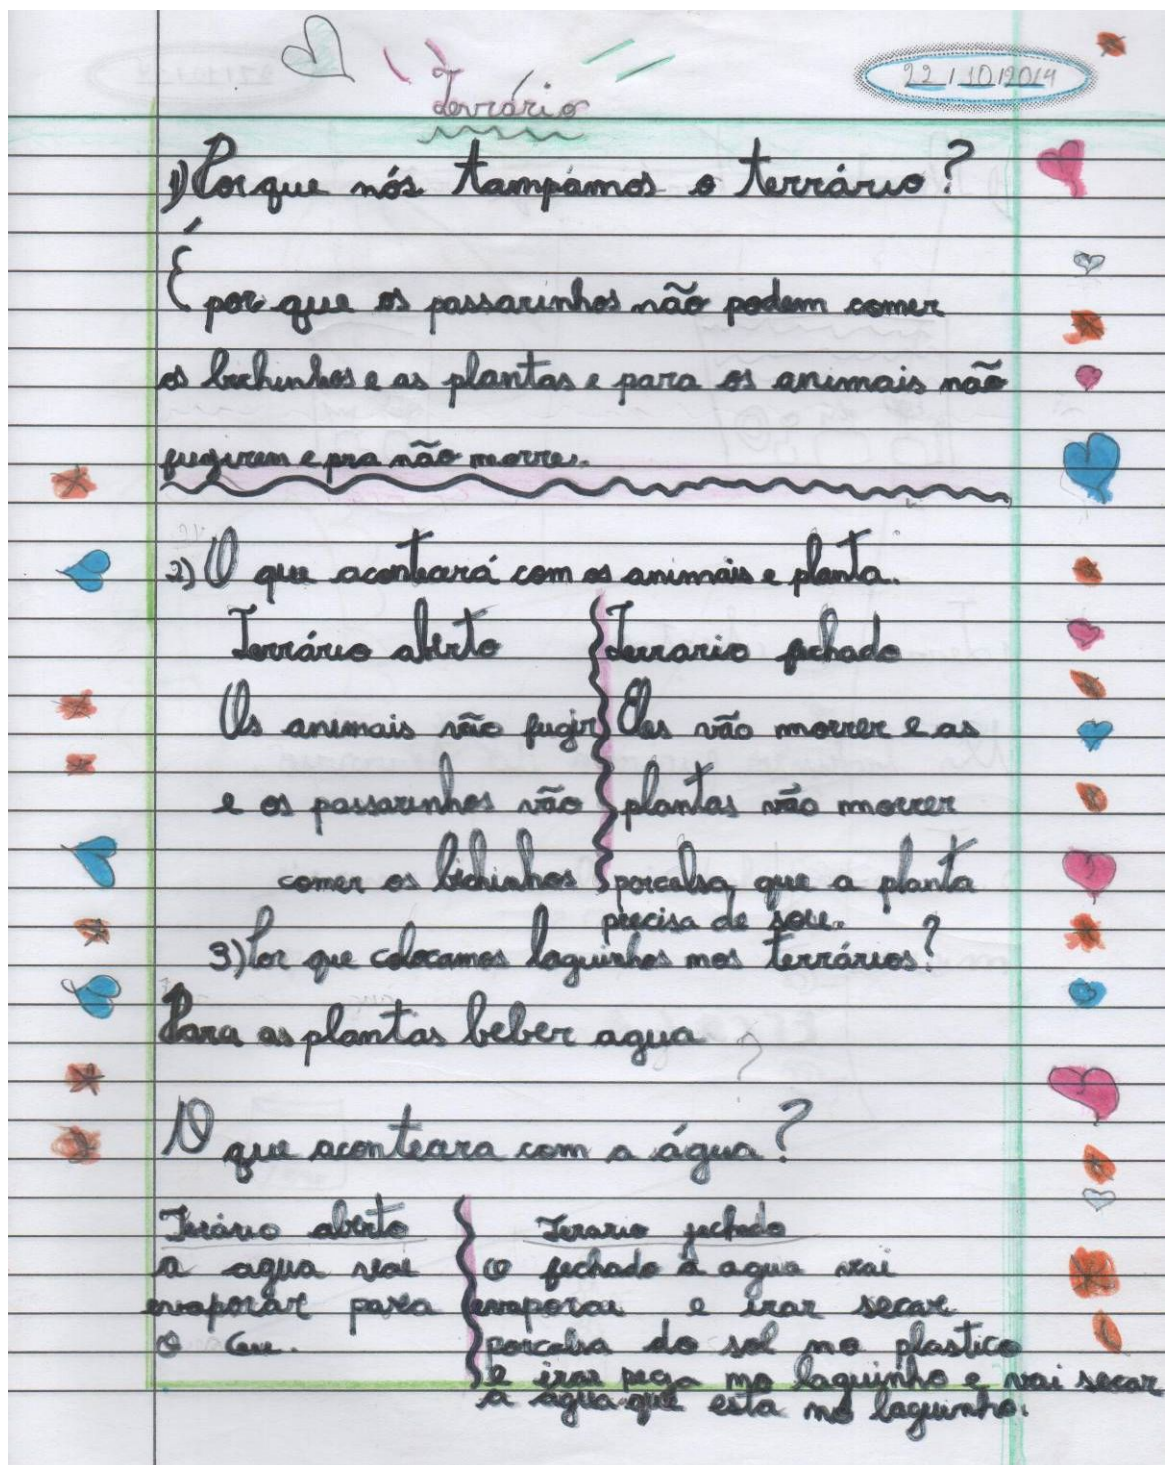 Terrário
22/10/2014
1) Por que nós tampamos o terrário?
É por que os passarinhos não podem comer
os bichinhos e as plantas e para os animais não
fugirem e pra não morre.
2) O que acontecerá com os animais e planta.
Terrário aberto
Os animais vão fugir
e os passarinhos vão
comer os bichinhos
Terrario fechado
Eles vão morrer e as
plantas vão morrer
porcalsa que a planta
precisa de sou.
3) Por que colocamos laguinhos nos terrários?
Para as plantas beber agua
O que acontecera com a água?
Terário aberto
a agua vai
evaporar para
o Ceu.
Terario fechado
o fechado a agua vai
evaporar e irar secar
porcalsa do sol no plastico
e irar pega no laguinho e vai secar
a agua que esta no laguinho.